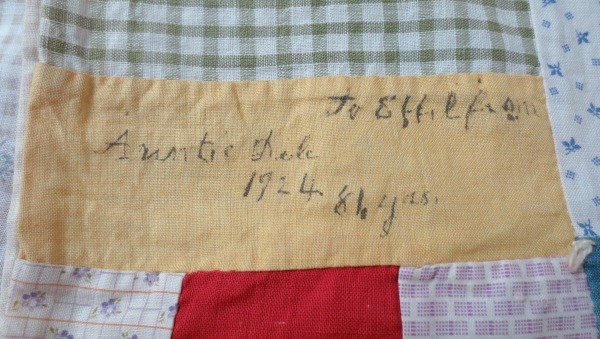 To Effil from
Auntie Dek
1924 81 yrs.